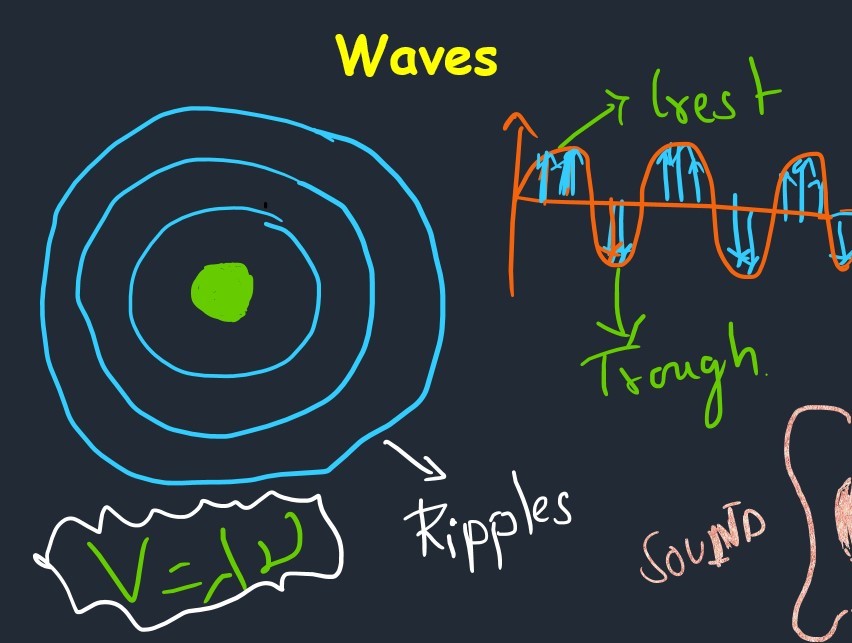 Waves
Crest
Trough
Ripples
V = λν
SOUND